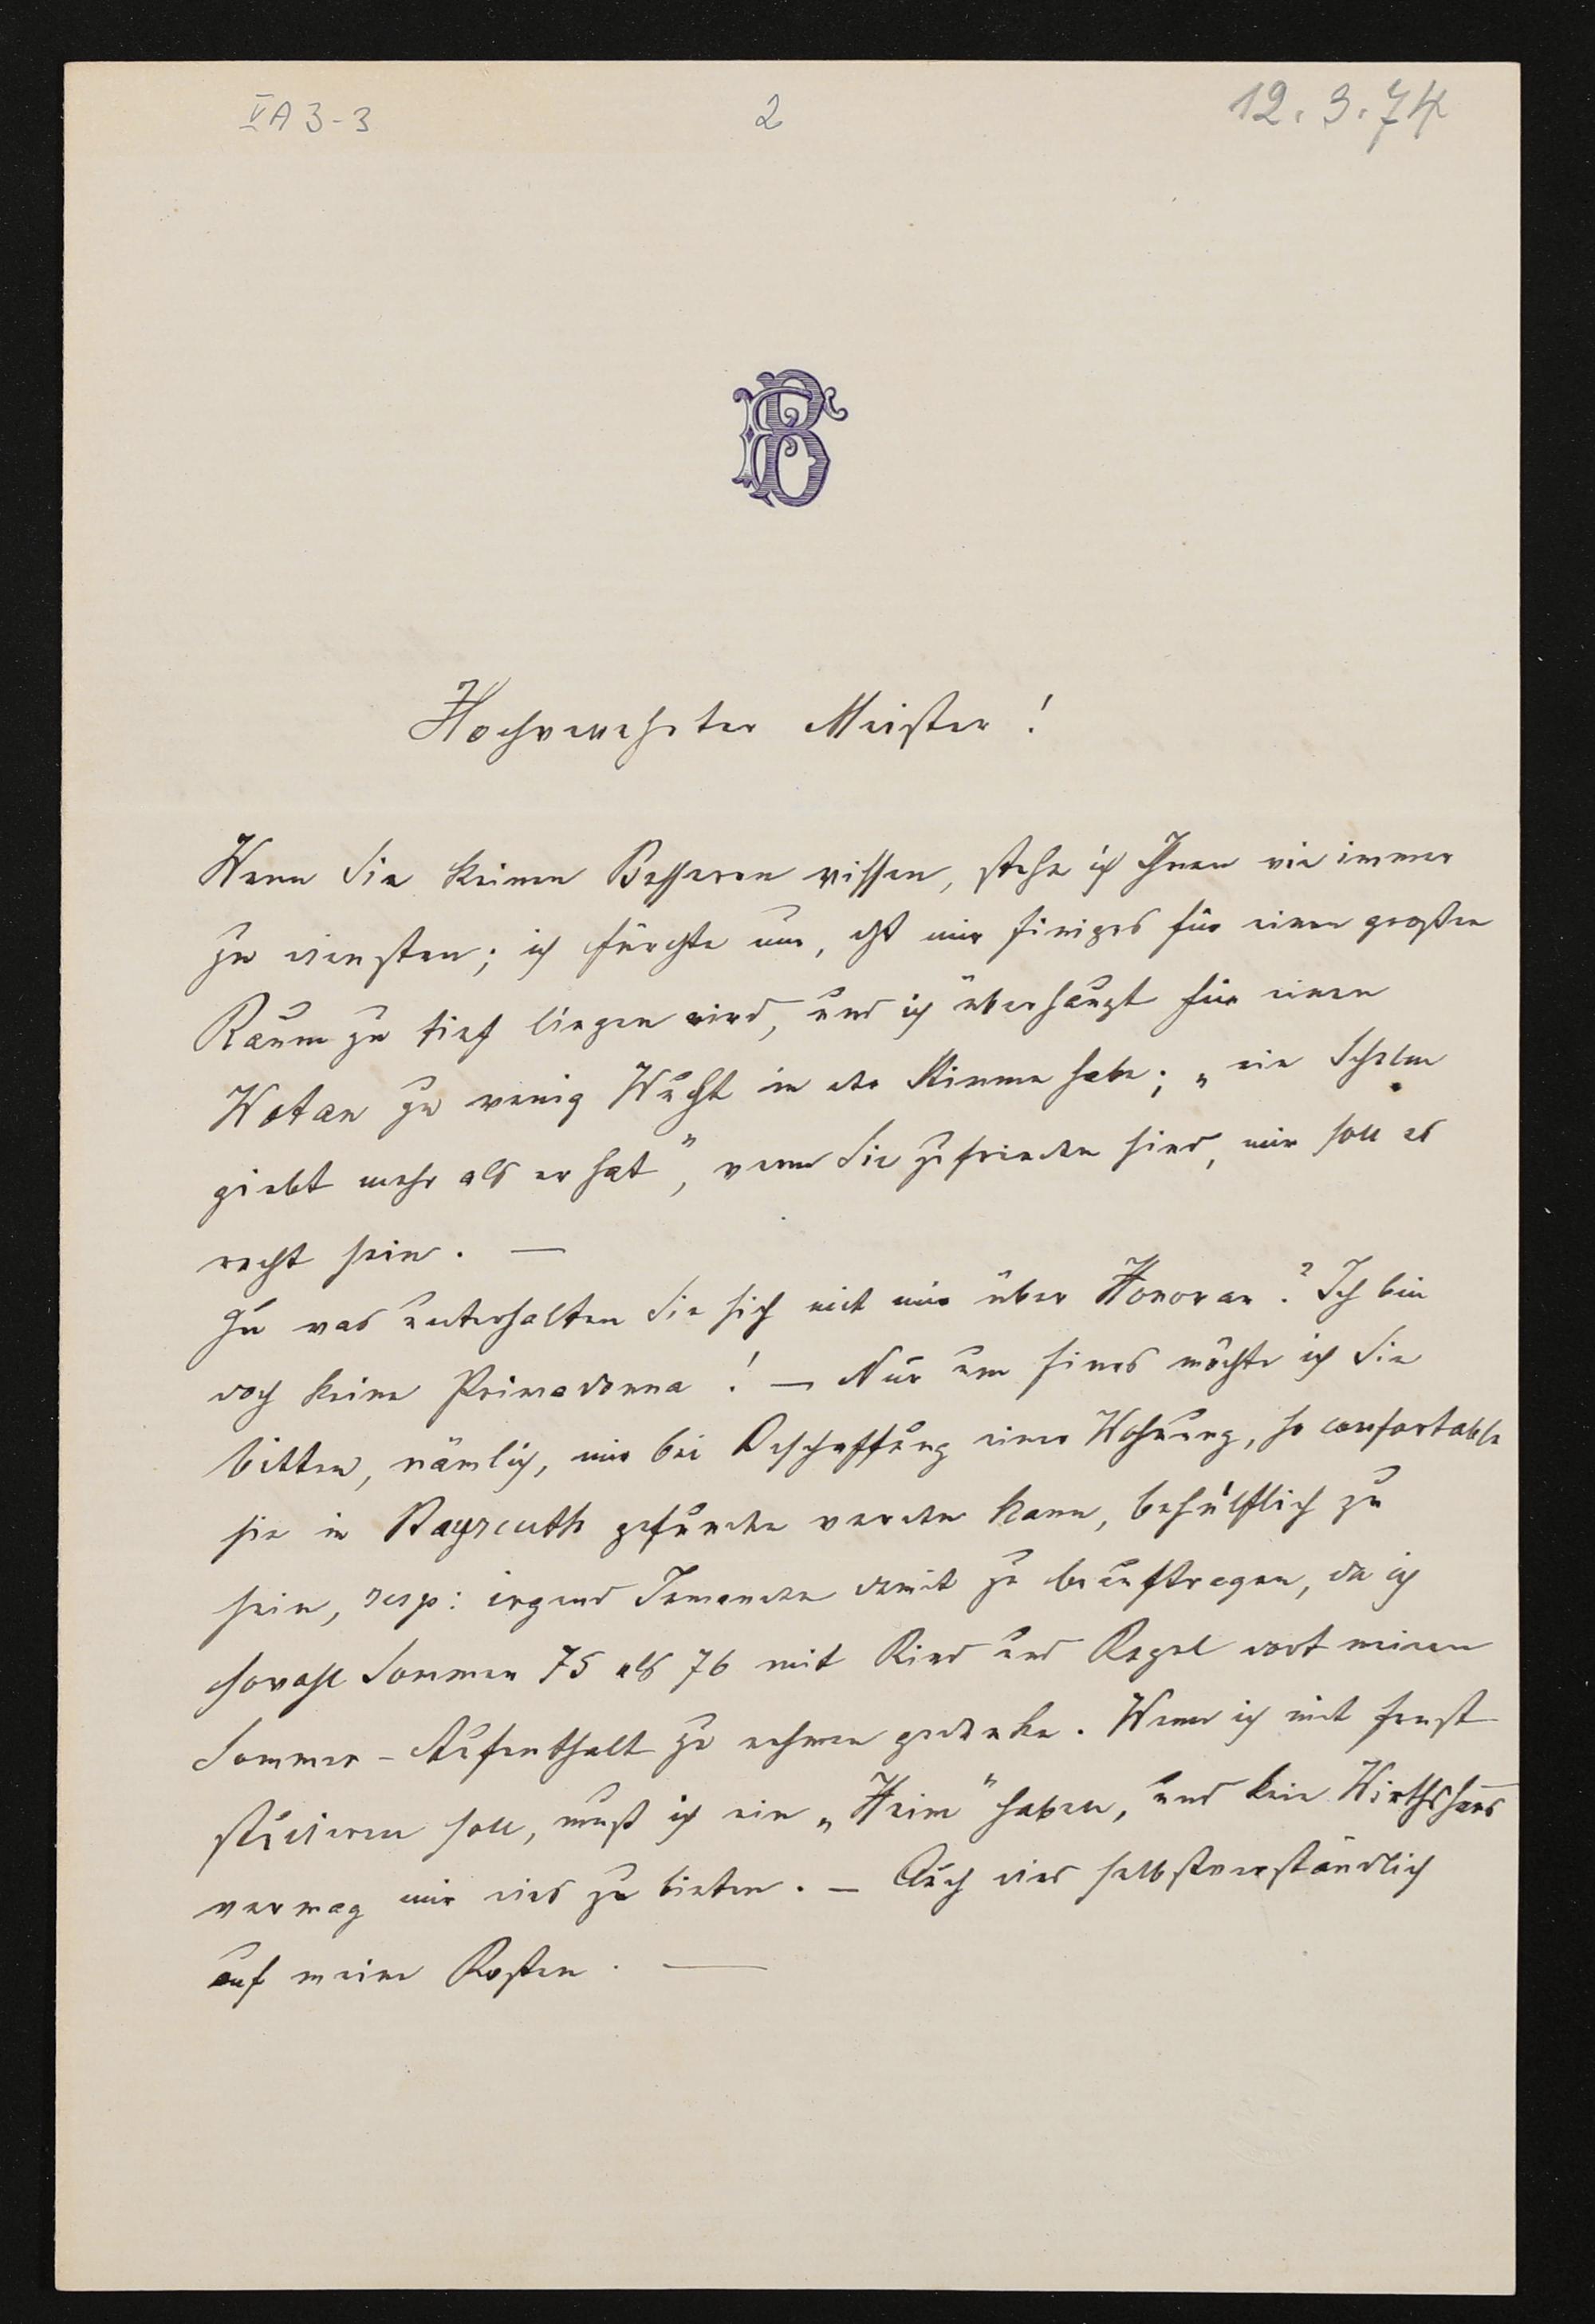 VA3-3
2
12.3.74
FB
Hochverehrter Meister!
Wenn Sie keinen Besseren wissen, stehe ich Ihnen wie immer
zu diensten; ich fürchte nur, daß mir Einiges für einen großen
Raum zu tief liegen wird, und ich überhaupt für einen
Wotan zu wenig Wucht in der Stimme habe; „ein Schelm
giebt mehr als er hat", wenn Sie zufrieden sind, mir soll es
recht sein. —
Zu was unterhalten Sie sich mit mir über Honorar? Ich bin
doch keine Primadonna! — Nur um Eines möchte ich Sie
bitten, nämlich, mir bei Beschaffung einer Wohnung, so comfortable
sie in Bayreuth gefunden werden kann, behülflich zu
sein, resp: irgend Jemanden damit zu beauftragen, da ich
sowohl Sommer 75 als 76 mit Kind und Kegel dort meinen
Sommer-Aufenthalt zu nehmen gedenke. Wenn ich mit Ernst
studieren soll, muß ich ein „Heim" haben, und kein Wirthshaus
vermag mir dies zu bieten. — Auch dies selbstverständlich
auf meine Kosten. —